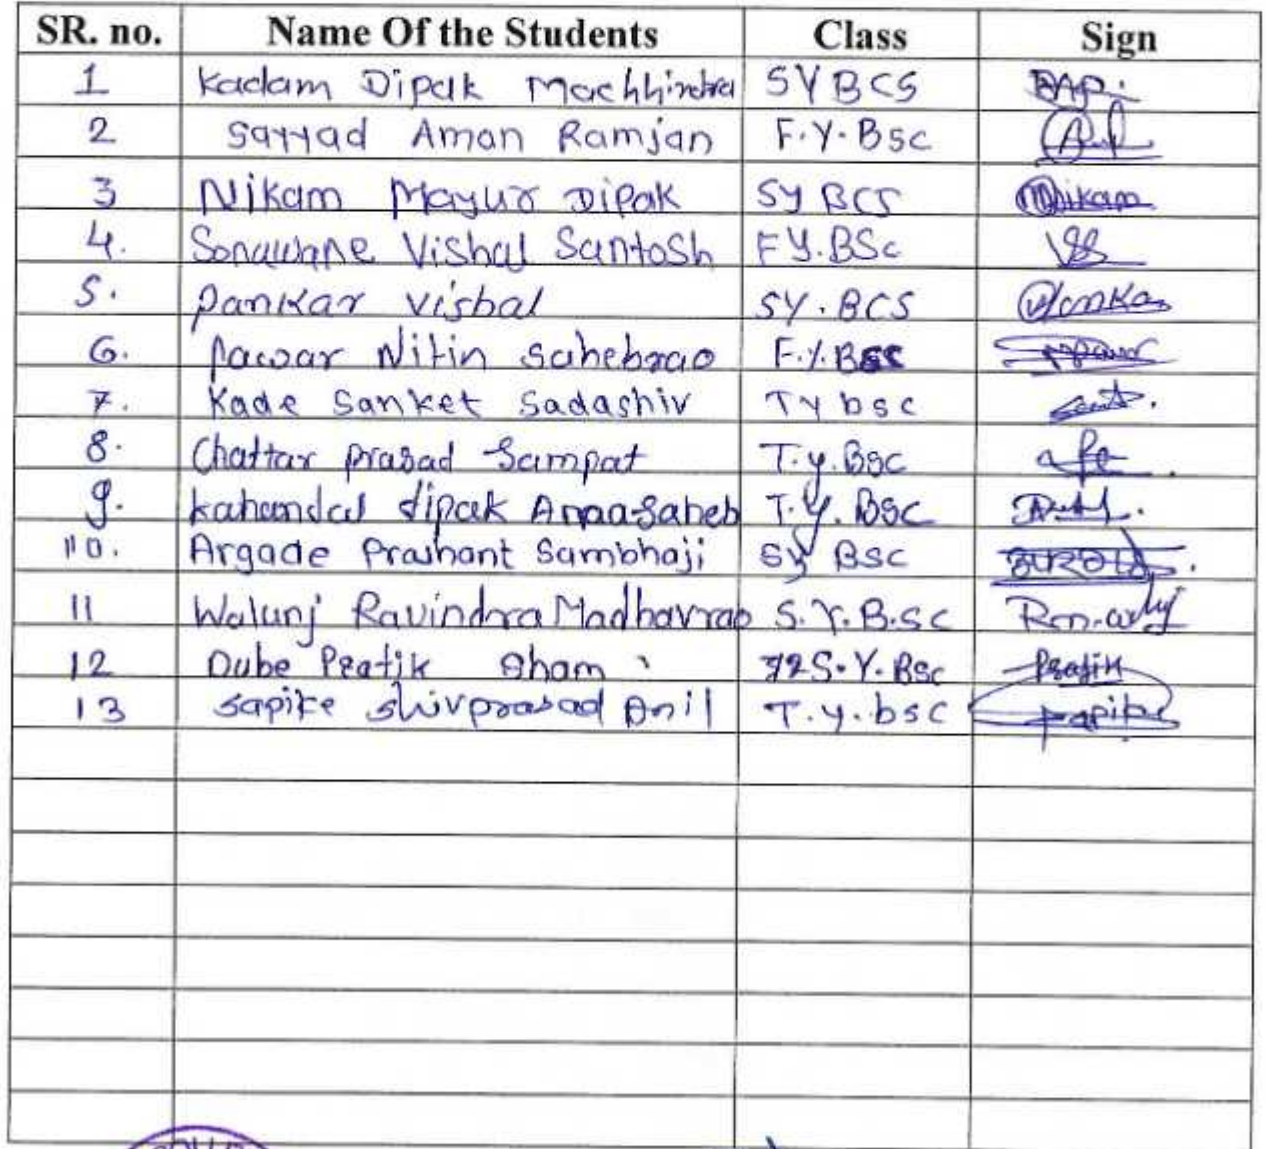 SR. no. Name Of the Students Class Sign
1 Kadam Dipak Machhindra SYBCS
2 Sayyad Aman Ramjan F.Y.Bsc
3 Nikam Mayur Dipak SY BCS Nikam
4. Sonawane Vishal Santosh FY.BSc
5. Pankar Vishal SY.BCS
6. Pawar Nitin Sahebrao F.Y.BSC
7. Kade Sanket Sadashiv TY bsc
8. Chattar prasad Sampat T.y.Bsc
9. Kahandal dipak Annasaheb T.Y.BSC
10. Argade Prashant Sambhaji SY BSC
11 Walunj Ravindra Madhavrao S.Y.B.sc
12 Dube Pratik Sham S.Y.BSc Pratik
13 sapike shivprasad Anil T.y.bsc sapike